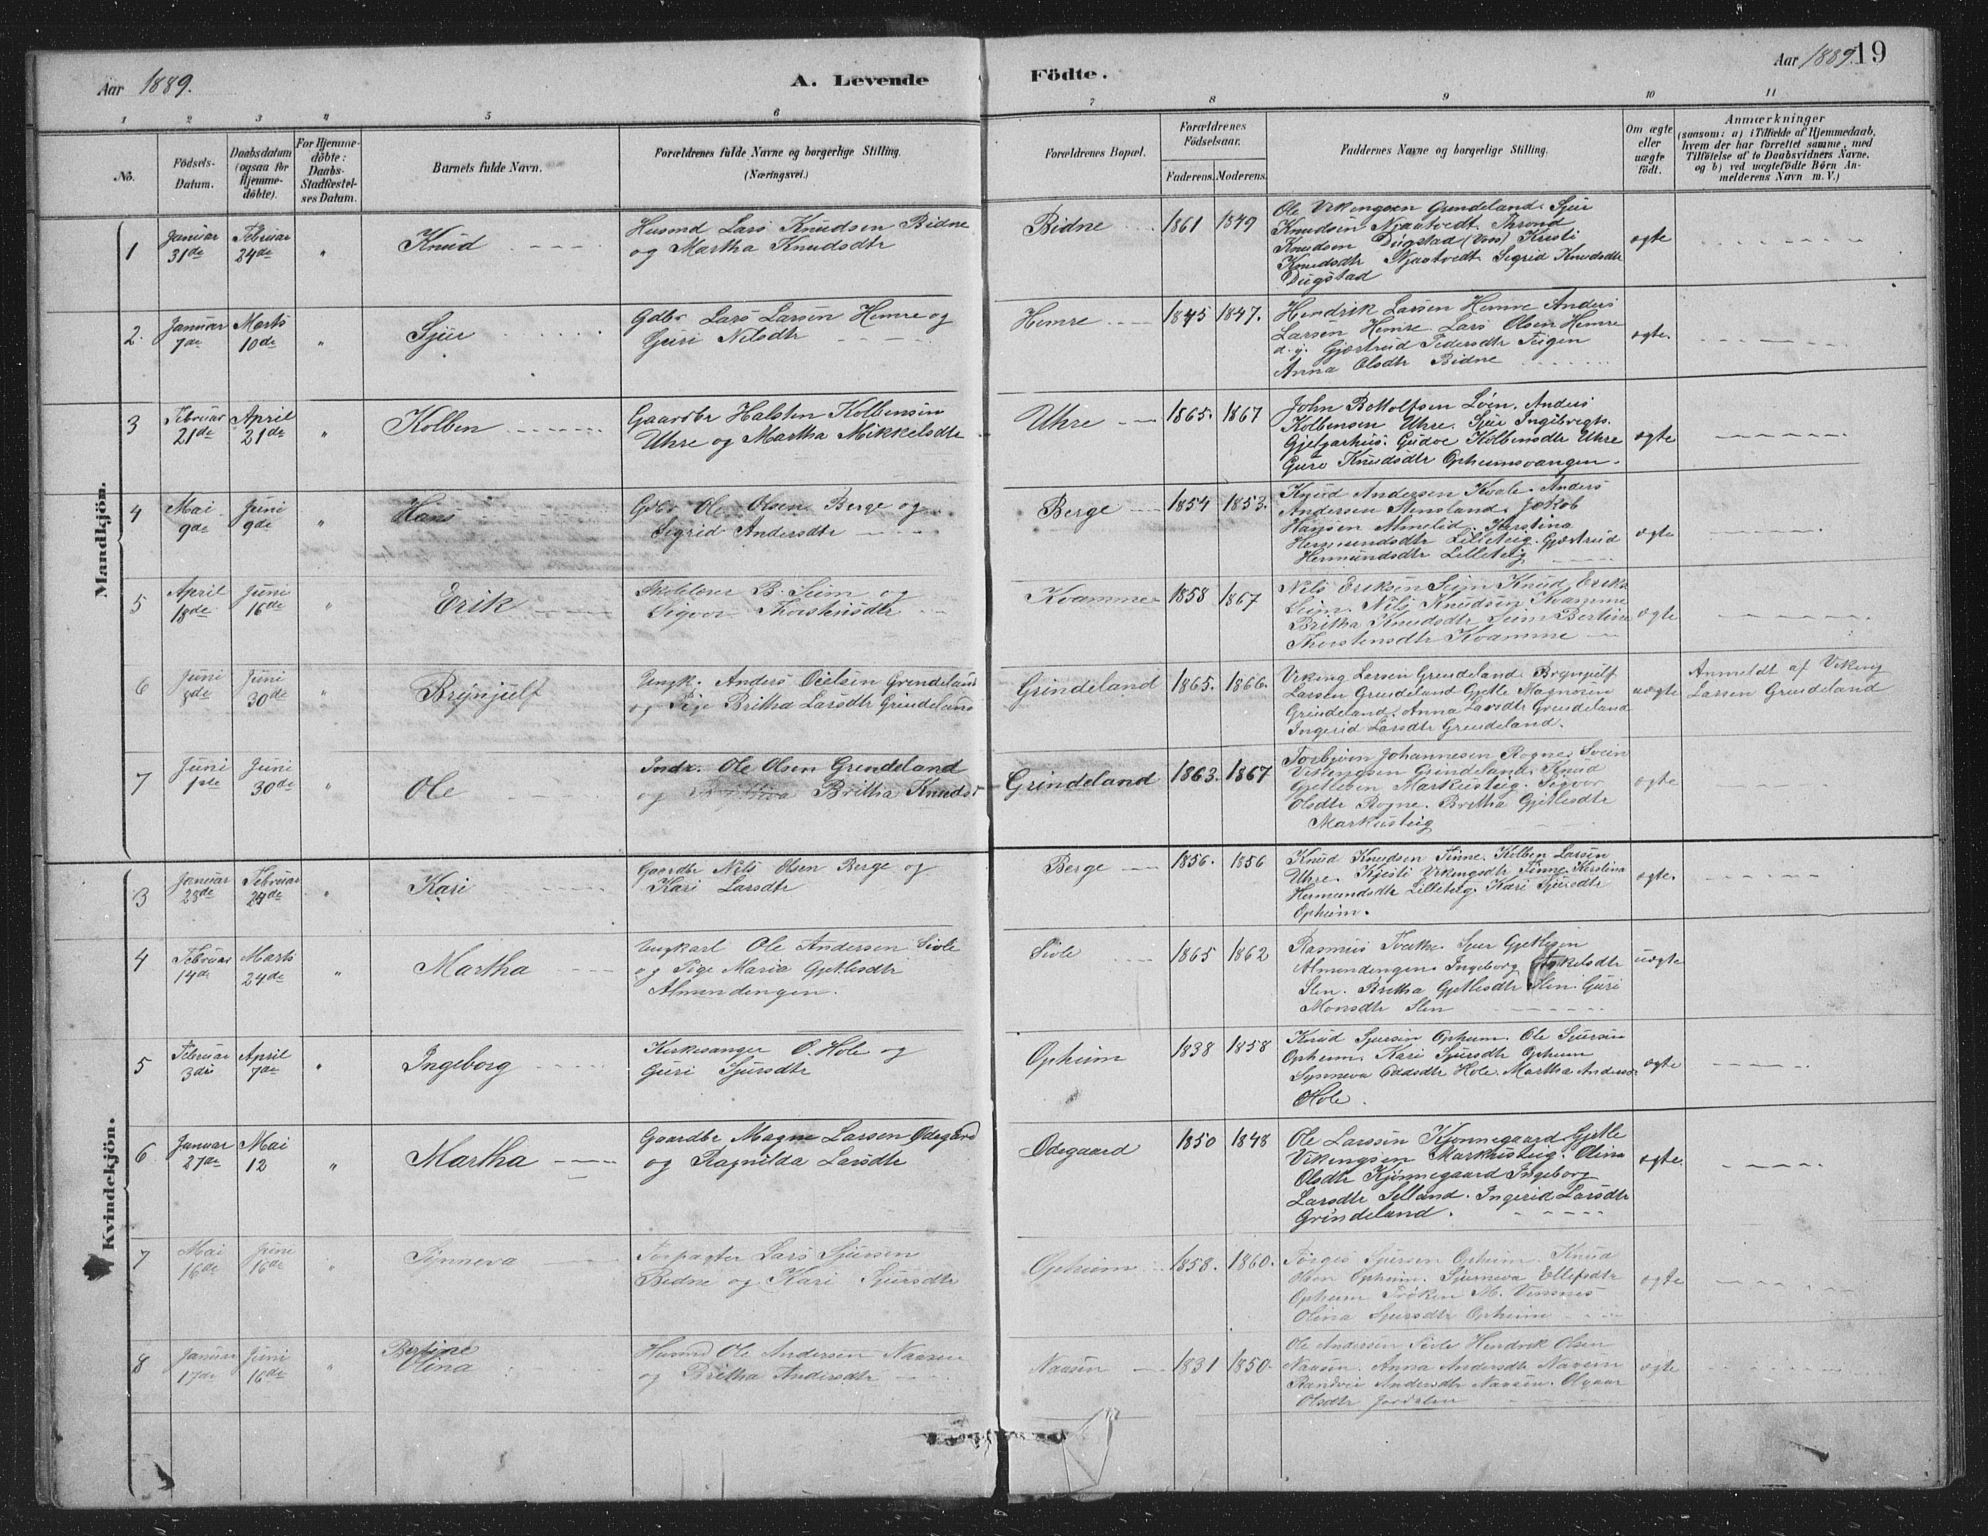 Aar 1889. A. Levende
Födte. Aar 1889. 19
1 2 3 4 5 6 7 8 9 10 11
No.
Födsels-
Datum.
Daabsdatum
(ogsaa for
Hjemme-
döbte).
For Hjemme-
döbte:
Daabs-
Stadfæstel-
ses Datum.
Barnets fulde Navn.
Forældrenes fulde Navne og borgerlige Stilling.
(Næringsvei.)
Forældrenes Bopæl.
Forældrenes
Födselsaar.
Faderens. Moderens.
Faddernes Navne og borgerlige Stilling.
Om ægte
eller
uægte
födt.
Anmærkninger
(saasom: a) i Tilfælde af Hjemmedaab,
hvem der har forrettet samme, med
Tilföielse af to Daabsvidners Navne,
og b) ved uægtefödte Börn An-
melderens Navn m. V.)
Mandkjön.
1 Januar 31de Februar 24de " Knud
Husmd Lars Knudsen Bidne
og Martha Knudsdtr
Bidne 1861 1849
Ole Vikingsen Grindeland. Sjur
Knudsen Njaatvedt. Thrond
Knudsen Dugstad (Vos) Kristi
Knudsdtr Njaatvedt Sigrid Knudsdtr
Dugstad
ægte
2. Januar 7de Marts 10de " Sjur
Gdbr Lars Larsen Hemre og
Guri Nilsdtr
Hemre 1845 1847.
Hendrik Larsen Hemre Anders
Larsen Hemre Lars Olsen Hemre
d. y. Gjertrud Pedersdtr Teigen
Anna Olsdtr Bidne
ægte
3 Februar 21de April 21de " Kolben
Gaardbr Halsten Kolbensen
Uhre og Martha Mikkelsdtr
Uhre 1865. 1867
John Bottolfsen Löen. Anders
Kolbensen Uhre. Sjur Ingebregts.
Gjelgarhus. Gudve Kolbensdtr Uhre
Guro Knudsdtr Opheimsvangen.
ægte
4 Mai 9de Juni 9de " Hans
Gdbr Ole Olsen Berge og
Sigrid Andersdtr
Berge 1854 1853.
Knud Andersen Kvale. Anders
Andersen Stensland. Jakob
Hansen Almelid. Kerstina
Hermundsdtr Lilleteig. Gjertrud
Hermundsdtr Lilleteig
ægte
5 April 18de Juni 16de " Erik
Skolelærer B. Seim og
Sigvor Thorstensdtr
Kvamme 1858 1867
Nils Eriksen Seim Knud Eriks
Seim. Nils Knudsen Kvamme
Britha Knudsdtr Seim Bertine
Thorstensdtr Kvamme
ægte
6 Juni 8de Juni 30de " Brynjulf
Ungk. Anders Grindeland
og Pige Britha Larsdtr Grindeland
Grindeland 1865. 1866.
Viking Larsen Grindeland. Brynjulf
Larsen Grindeland Gjetle Magnesen
Grindeland. Anna Larsdtr Grindeland
Ingerid Larsdtr Grindeland.
uægte
Anmeldt af Viking
Larsen Grindeland
7 Juni 1ste Juni 30de " Ole
Indr. Ole Olsen Grindeland
og Britha Knudsd
Grindeland 1863. 1867
Torbjörn Johannesen Rogne Svein
Vikingsen Grindeland. Knud
Gjetlesen Markusteig. Sigvor
Olsdtr Rogne. Britha Gjetlesdtr
Markusteig
ægte
Kvindekjön.
3 Januar 28de Februar 24de " Kari
Gaardbr Nils Olsen Berge og
Kari Larsdtr
Berge 1856. 1856
Knud Knudsen Finne. Kolben Larsen
Uhre. Kjesti Vikingsdtr Finne. Kerstina
Hermundsdtr Lilleteig. Kari Sjursdtr
Opheim.
ægte.
4 Februar 14de Marts 24de " Martha
Ungkarl Ole Andersen Sivle
og Pige Maria Gjetlesdtr
Almendingen.
Sivle 1865 1862
Rasmus Tvedte. Sjur Gjetlesen
Almendingen. Ingeborg
Slen. Britha Gjetlesdtr Slen. Guri
Monsdtr Slen
uægte
5 Februar 3die April 7de " Ingeborg
Kirkesanger O. Hole og
Guri Sjursdtr
Opheim 1838 1858
Knud Sjursen Opheim. Ole Sjursen
Opheim. Kari Sjursdtr Opheim
Synneva Oddsdtr Hole. Martha Andersd
Hole.
ægte
6 Januar 27de Mai 12 " Martha
Gaardbr Magne Larsen Ödegård
og Ragnilda Larsdtr
Ödegaard 1850 1848
Ole Larssen Kjönnegaard. Gjetle
Vikingsen Markusteig. Olina
Olsdtr Kjönnegaard Ingeborg
Larsdtr Selland. Ingerid Larsdtr
Grindeland.
ægte.
7 Mai 16de Juni 16de " Synneva
Forpagter Lars Sjursen
Bidne og Kari Sjursdtr
Opheim 1858. 1860.
Torgis Sjursen Opheim. Knud
Olsen Opheim. Synneva Ellefsdtr
Opheim Fröken M. Vinsnes
Olina Sjursdtr Opheim
ægte
8 Januar 17de Juni 16de " Bertine
Olina
Husmd Ole Andersen Naasen
og Britha Andersdtr
Naasen 1831 1850.
Ole Andersen Sivle Hendrik Olsen
Naasen. Anna Andersdtr Naasen
Randvei Andersdtr Naasen. Olgaar
Olsdtr Jordalen
ægte